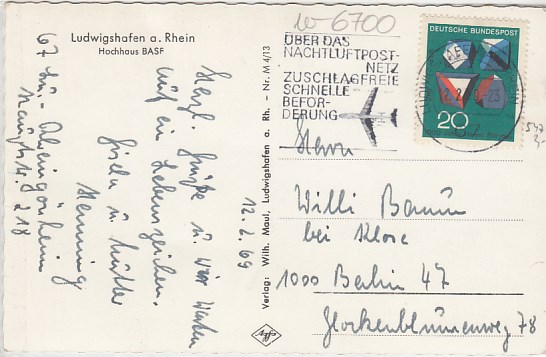 Ludwigshafen a. Rhein
Hochhaus BASF
Herzl. Grüße u. wir warten
auf ein Lebenszeichen.
Gisela u. Mutter
Henning
67 Lu.- Rheingönheim
Hauptstr. 218
12. 2. 69
Verlag: Wilh. Maul, Ludwigshafen a. Rh. - Nr. M 4/13
6700
ÜBER DAS
NACHTLUFTPOST-
NETZ
ZUSCHLAGFREIE
SCHNELLE
BEFÖR-
DERUNG
DEUTSCHE BUNDESPOST
20
Herrn
Willi Baum
bei Klose
1000 Berlin 47
Glockenblumenweg 78
Agfa